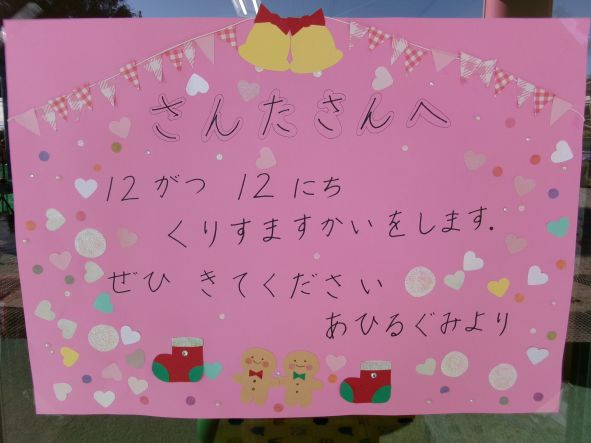 さんたさんへ
12がつ 12にち
くりすますかいをします.
ぜひ きてください
あひるぐみより